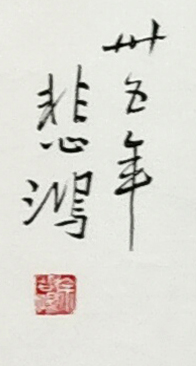 卅五年
悲鴻